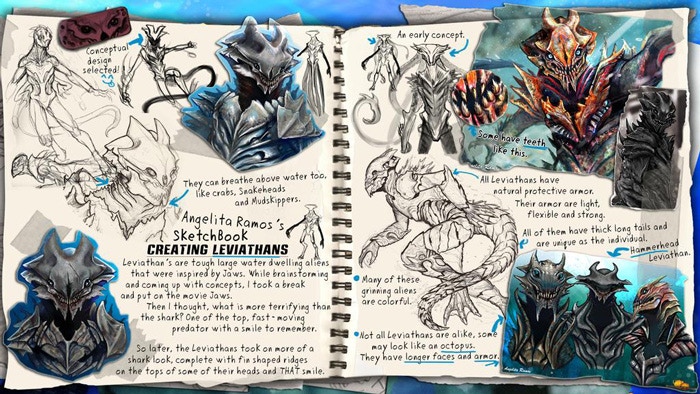 Conceptual
design
selected!
They can breathe above water too,
like crabs, Snakeheads
and Mudskippers.
Angelita Ramos's
SketchBook
CREATING LEVIATHANS
Leviathan's are tough large water dwelling aliens
that were inspired by Jaws. While brainstorming
and coming up with concepts, I took a break
and put on the movie Jaws.
Then I thought, what is more terrifying than
the shark? One of the top, fast-moving
predator with a smile to remember.
So later, the Leviathans took on more of a
shark look, complete with fin shaped ridges
on the tops of some of their heads and THAT smile.
An early concept.
Some have teeth
like this.
All Leviathans have
natural protective armor.
Their armor are light,
flexible and strong.
All of them have thick long tails and
are unique as the individual.
Hammerhead
Leviathan.
Many of these
grinning aliens
are colorful.
Not all Leviathans are alike, some
may look like an octopus.
They have longer faces and armor.
Angelita Ramos